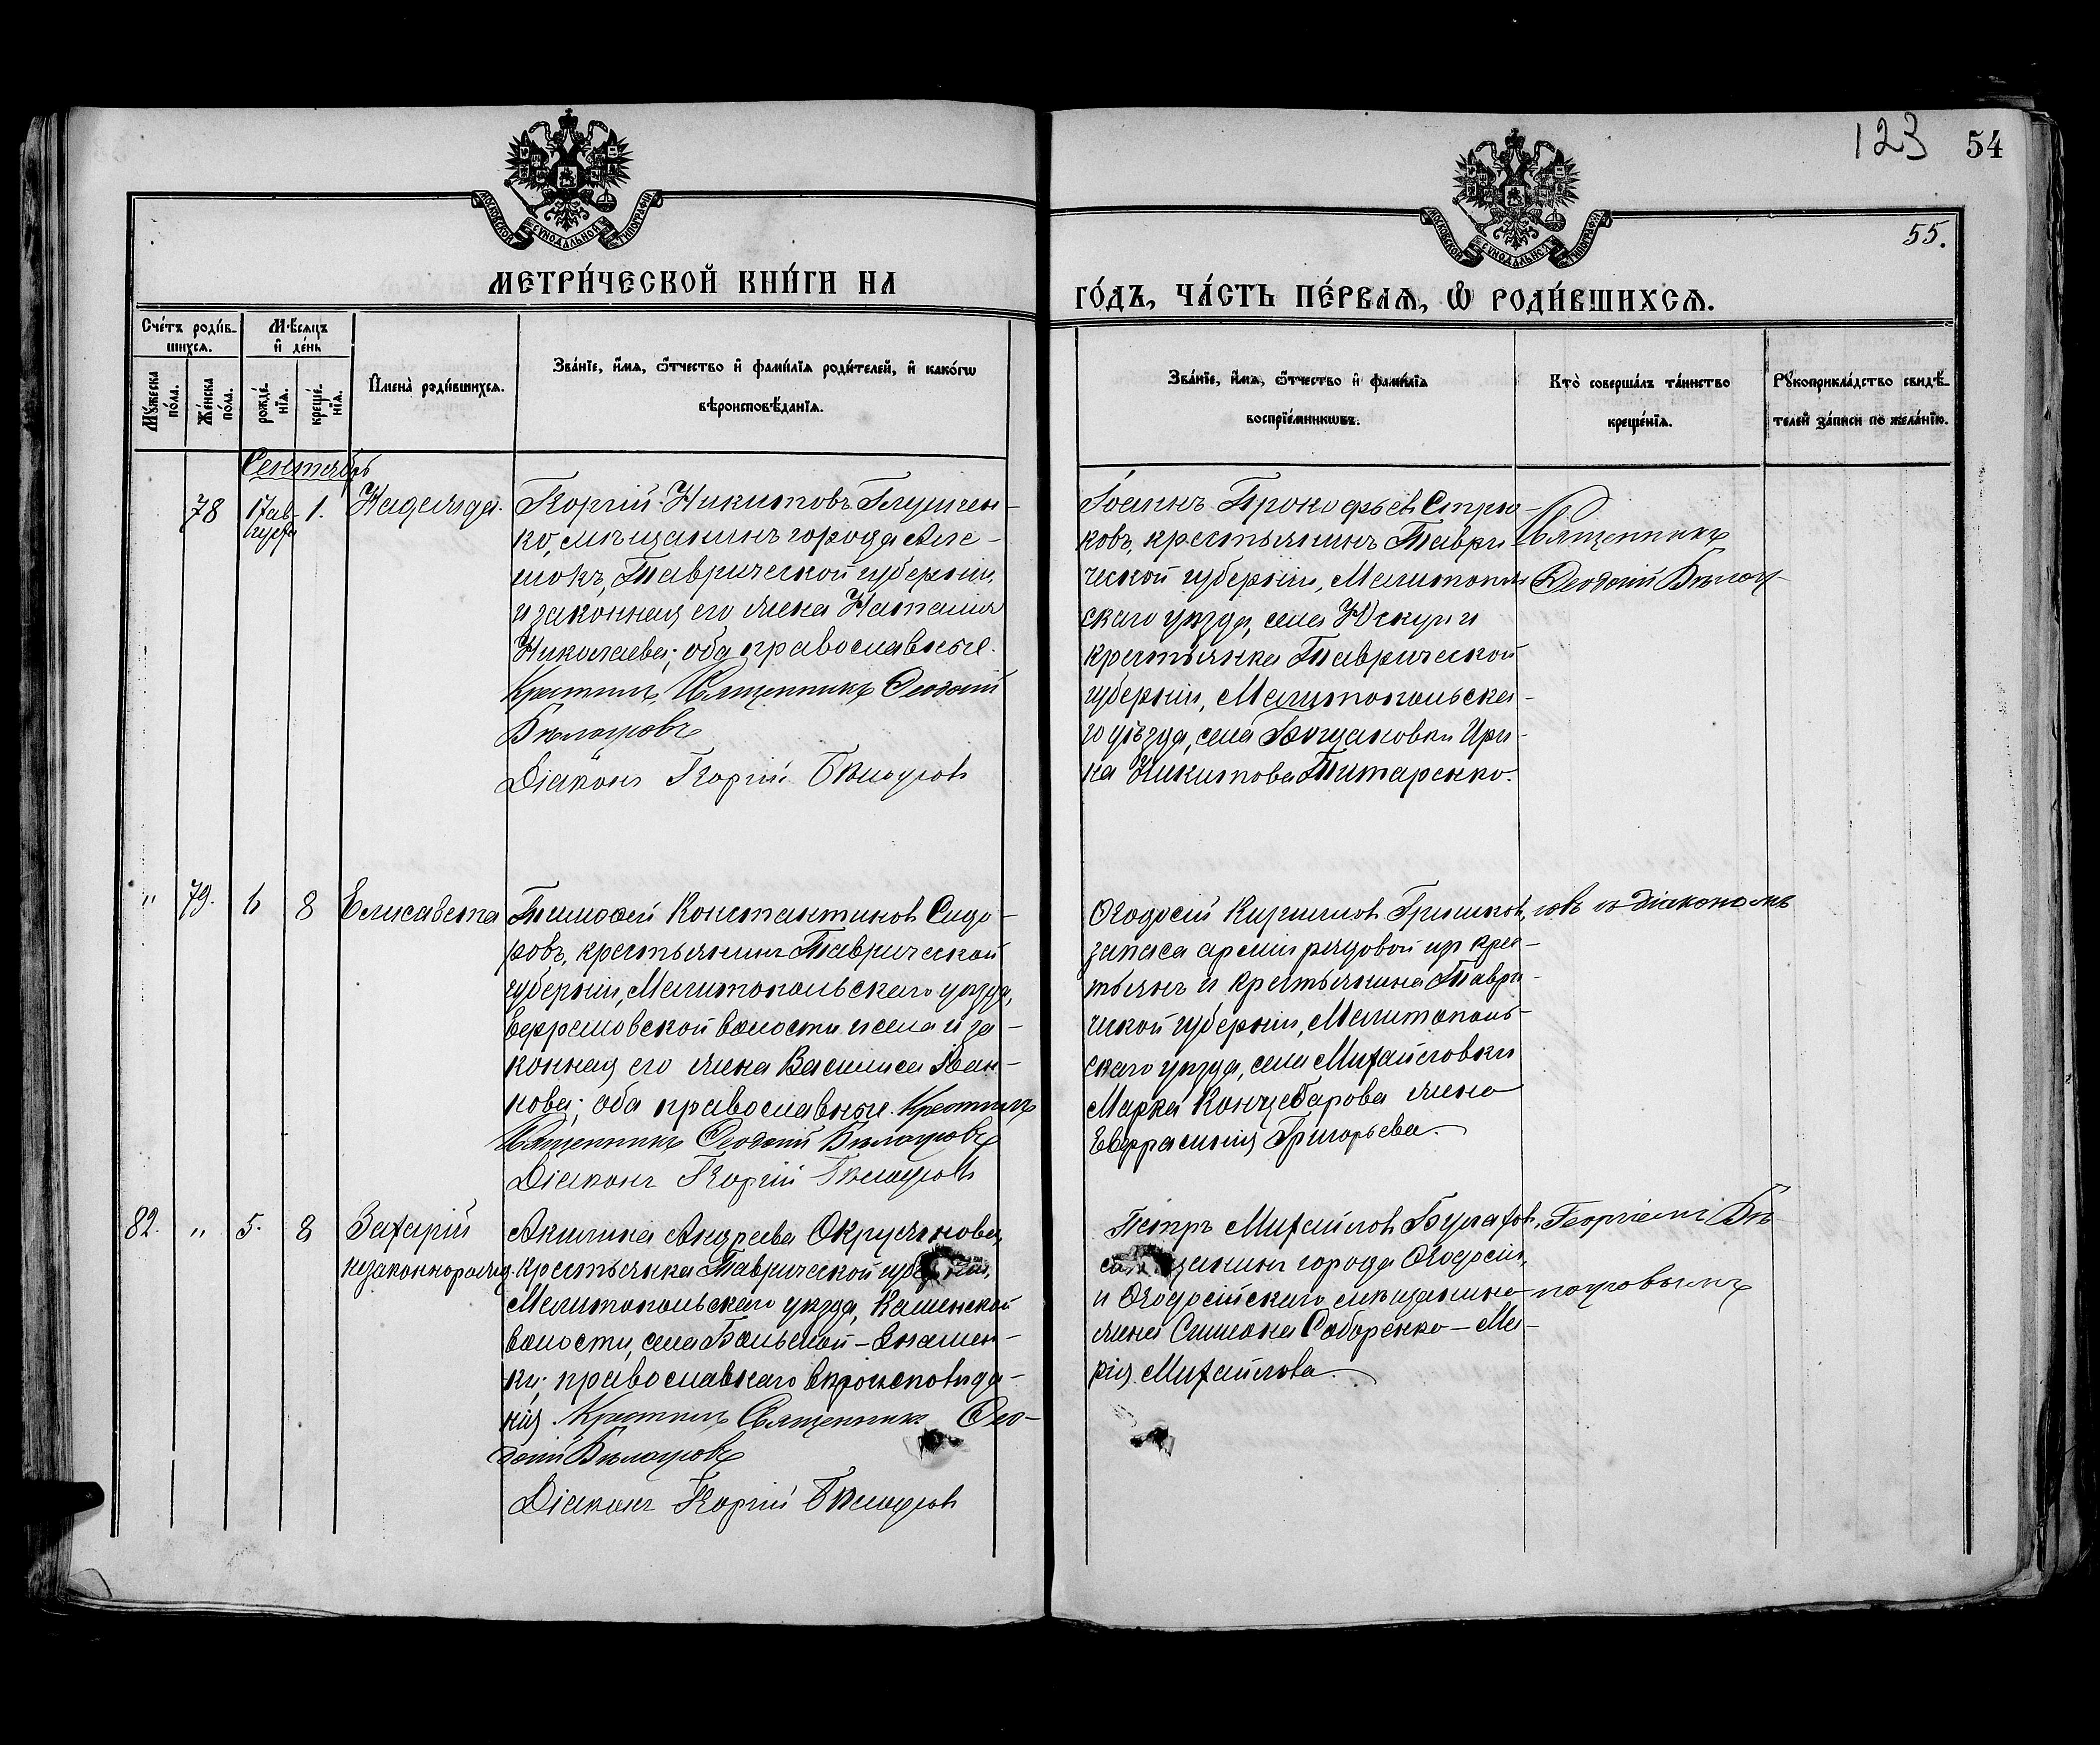 123 54
55.
МОСКОВСКОЙ СУНОДАЛЬНОЙ ТИПОГРАФІИ
МОСКОВСКОЙ СУНОДАЛЬНОЙ ТИПОГРАФІИ
МЕТРИ́ЧЕСКОЙ КНИ́ГИ НА
ГО́ДЪ, ЧА́СТЬ ПЕ́РВАѦ, Ѽ РОДИ́ВШИХСѦ.
Сче́тъ роди́в-
шихсѧ.
Мѣ́сѧцъ
и҆ де́нь
Мꙋ́жеска
по́ла.
Же́нска
по́ла.
рожде́-
нїѧ.
креще́-
нїѧ.
И҆мена̀ роди́вшихсѧ.
Зва́нїе, и҆́мѧ, ѻ҆́тчество и҆ фами́лїѧ роди́телей, и҆ како́гѡ
вѣроисповѣ́данїѧ.
Зва́нїе, и҆́мѧ, ѻ҆́тчество и҆ фами́лїѧ
воспрїе́мникѡвъ.
Кто̀ соверша́лъ та́инство
креще́нїѧ.
Рꙋкоприкла́дство свидѣ́-
телей за́писи по жела́нїю.
Сентябрь
78
17 ав-
густа
1.
Надежда.
Георгій Никитовъ Глущен-
ко, мѣщанинъ города Але-
шокъ, Таврической губерніи,
и законная его жена Наталія
Николаева; оба православные.
Крестилъ, Священникъ Ѳеодосій
Бѣлоусовъ
Діаконъ Георгій Бѣлоусовъ
Іоаннъ Прокофьевъ Стрю-
ковъ, крестьянинъ Таври-
ческой губерніи, Мелитополь
скаго уѣзда, села Юзкуи и
крестьянка Таврической
губерніи, Мелитопольска-
го уѣзда, села Богдановки Ири-
на Никитова Титаренко.
Священникъ
Ѳеодосій Бѣлоу-
" 79. 6 8 Елисавета
Тимоѳей Константиновъ Сидо-
ровъ, крестьянинъ Таврической
губерніи, Мелитопольскаго уѣзда,
Ефремовской волости и села и за-
конная его жена Василиса Іоан-
нова; оба православные. Крестилъ
Священникъ Ѳеодосій Бѣлоусовъ
Діаконъ Георгій Бѣлоусовъ
Ѳеодосій Кирилловъ Гришковъ,
запаса арміи рядовой изъ крес-
тьянъ и крестьянина Таври-
ческой губерніи, Мелитополь-
скаго уѣзда, села Михайловки
Марка Концебарова жена
Евфрасинія Григорьева.
совъ съ діакономъ
82. " 5. 8
Захарій
незаконнорожд.
Акилина Андреева Окружнова,
крестьянка Таврической губерніи,
Мелитопольскаго уѣзда, Каменской
волости, села Большой-Знамен-
ки; православнаго вѣроисповѣда-
нія. Крестилъ Священникъ Ѳео-
досій Бѣлоусовъ
Діаконъ Георгій Бѣлоусовъ
Петръ Михайловъ Булаховъ,
мѣщанинъ города Ѳеодосіи,
и Ѳеодосійскаго мѣщанина
жена Симеона Соборенко – Ма-
рія Михайлова.
Георгіемъ Бѣ-
лоусовымъ